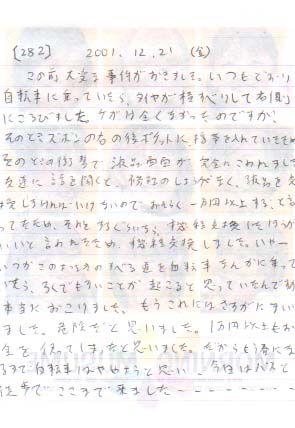 [282] 2001.12.21 (金)
この前大変な事件がおきました。いつもどおり
自転車に乗っていたら、タイヤが横すべりして右側
にころびました。ケガは全くなかったのですが、
そのときズボンの右の後ポケットに、携帯を入れていたため
そのときの衝撃で液晶画面が完全にこわれました。
友達に話を聞くと、修理のしようがなく、液晶を交
換しなければいけないので、おそらく一万円以上する、と言
ってたため、それをするぐらいなら、機種交換したほうが
いいと言われたため、機種交換しました。いやー
いつかこのようなのすべる道を自転車なんかに乗って
いたら、ろくでもないことが起こると思っていたんで
本当におこりました。もうこれにはさすがにまい
りました。危険だと思いました。1万円以上もお
金を使ってしまったと思いました。だからもう春にな
るまで自転車はやめようと思い、今日はバスと
徒歩でここまで来ました